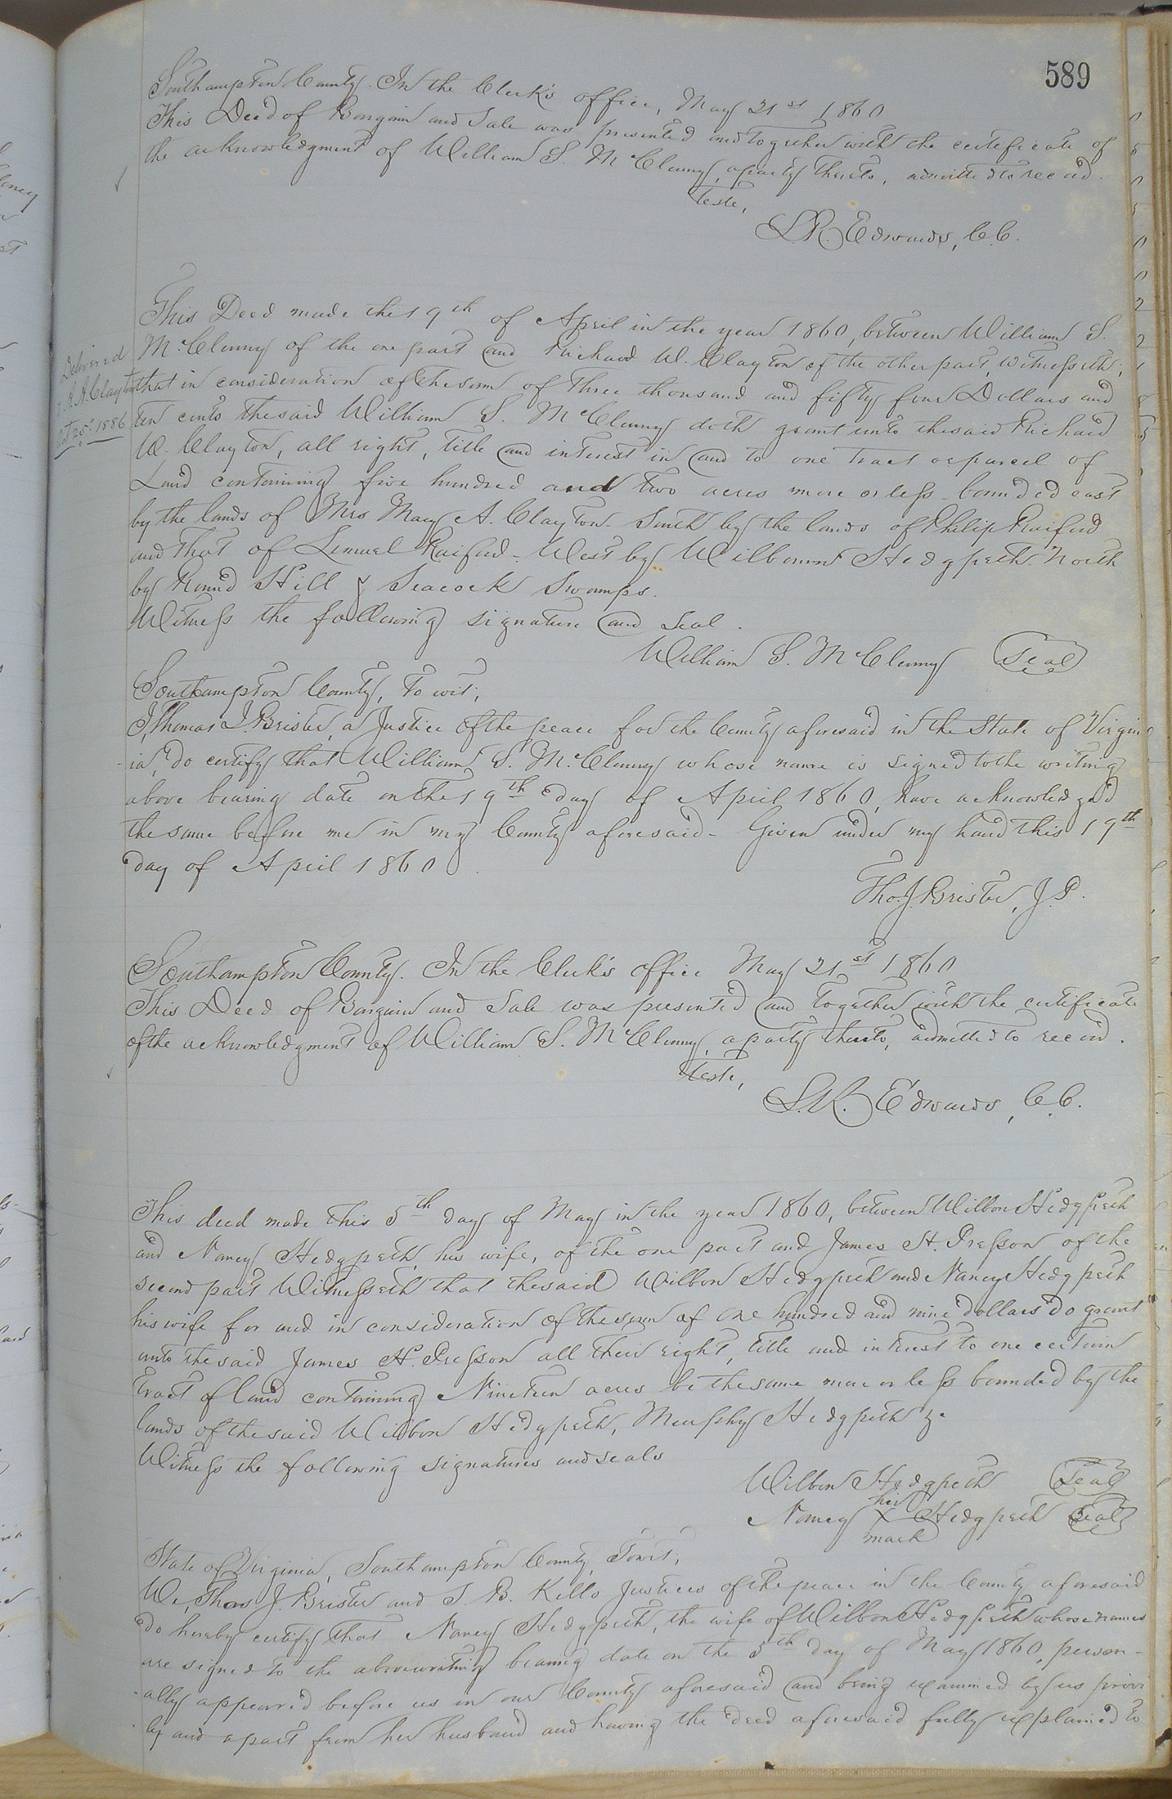 589
Southampton County. In the Clerk's office, May 21st 1860
This Deed of Bargain and Sale was presented and together with the certificate of
the acknowledgment of William S. McClenny, a party thereto, admitted to record.
Teste,
L.R. Edwards, C.C.
Delivered
Clayton
Oct 25th 1886
This Deed made the 19th of April in the year 1860, between William S.
McClenny of the one part and Richard W. Clayton of the other part, witnesseth;
that in consideration of the sum of three thousand and fifty four Dollars and
ten cents the said William S. McClenny doth grant unto the said Richard
W. Clayton, all right, title and interest in and to one tract or parcel of
Land containing five hundred and two acres more or less bounded east
by the lands of Mrs Mary A. Clayton South by the lands of Philip Raiford
and that of Lemuel Raiford - West by Wilborn Hedgpeth North
by Round Hill & Seacock Swamps.
Witness the following signature and seal.
William S. McClenny Seal
Southampton County, to wit;
I Thomas J. Brister, a Justice of the peace for the County aforesaid in the State of Virgin
ia, do certify that William S. McClenny whose name is signed to the writing
above bearing date on the 19th day of April 1860, have acknowledged
the same before me in my County aforesaid - Given under my hand this 19th
day of April 1860.
Tho. J. Brister, J.P.
Southampton County. In the Clerk's office May 21st 1860
This Deed of Bargain and Sale was presented and together with the certificate
of the acknowledgment of William S. McClenny, a party thereto, admitted to record.
Teste,
L.R. Edwards, C.C.
This deed made this 5th day of May in the year 1860, between Wilbon Hedgpeth
and Nancy Hedgpeth, his wife, of the one part and James H. Presson of the
second part Witnesseth that the said Wilbon Hedgpeth and Nancy Hedgpeth
his wife for and in consideration of the sum of one hundred and nine dollars do grant
unto the said James H. Presson all their right, title and interest to one certain
tract of land containing Nineteen acres be the same more or less bounded by the
lands of the said Wilbon Hedgpeth, Murphy Hedgpeth &c
Witness the following signatures and seals
Wilbon Hedgpeth Seal
her
Nancy X Hedgpeth Seal
mark
State of Virginia, Southampton County, Towit;
We, Thos J. Brister and S. B. Kello Justices of the peace in the County aforesaid
do hereby certify that Nancy Hedgpeth, the wife of Wilbon Hedgpeth whose names
are signed to the above writing bearing date on the 5th day of May 1860, person-
ally appeared before us in our County aforesaid and being examined by us privi
ly and apart from her husband and having the deed aforesaid fully explained to